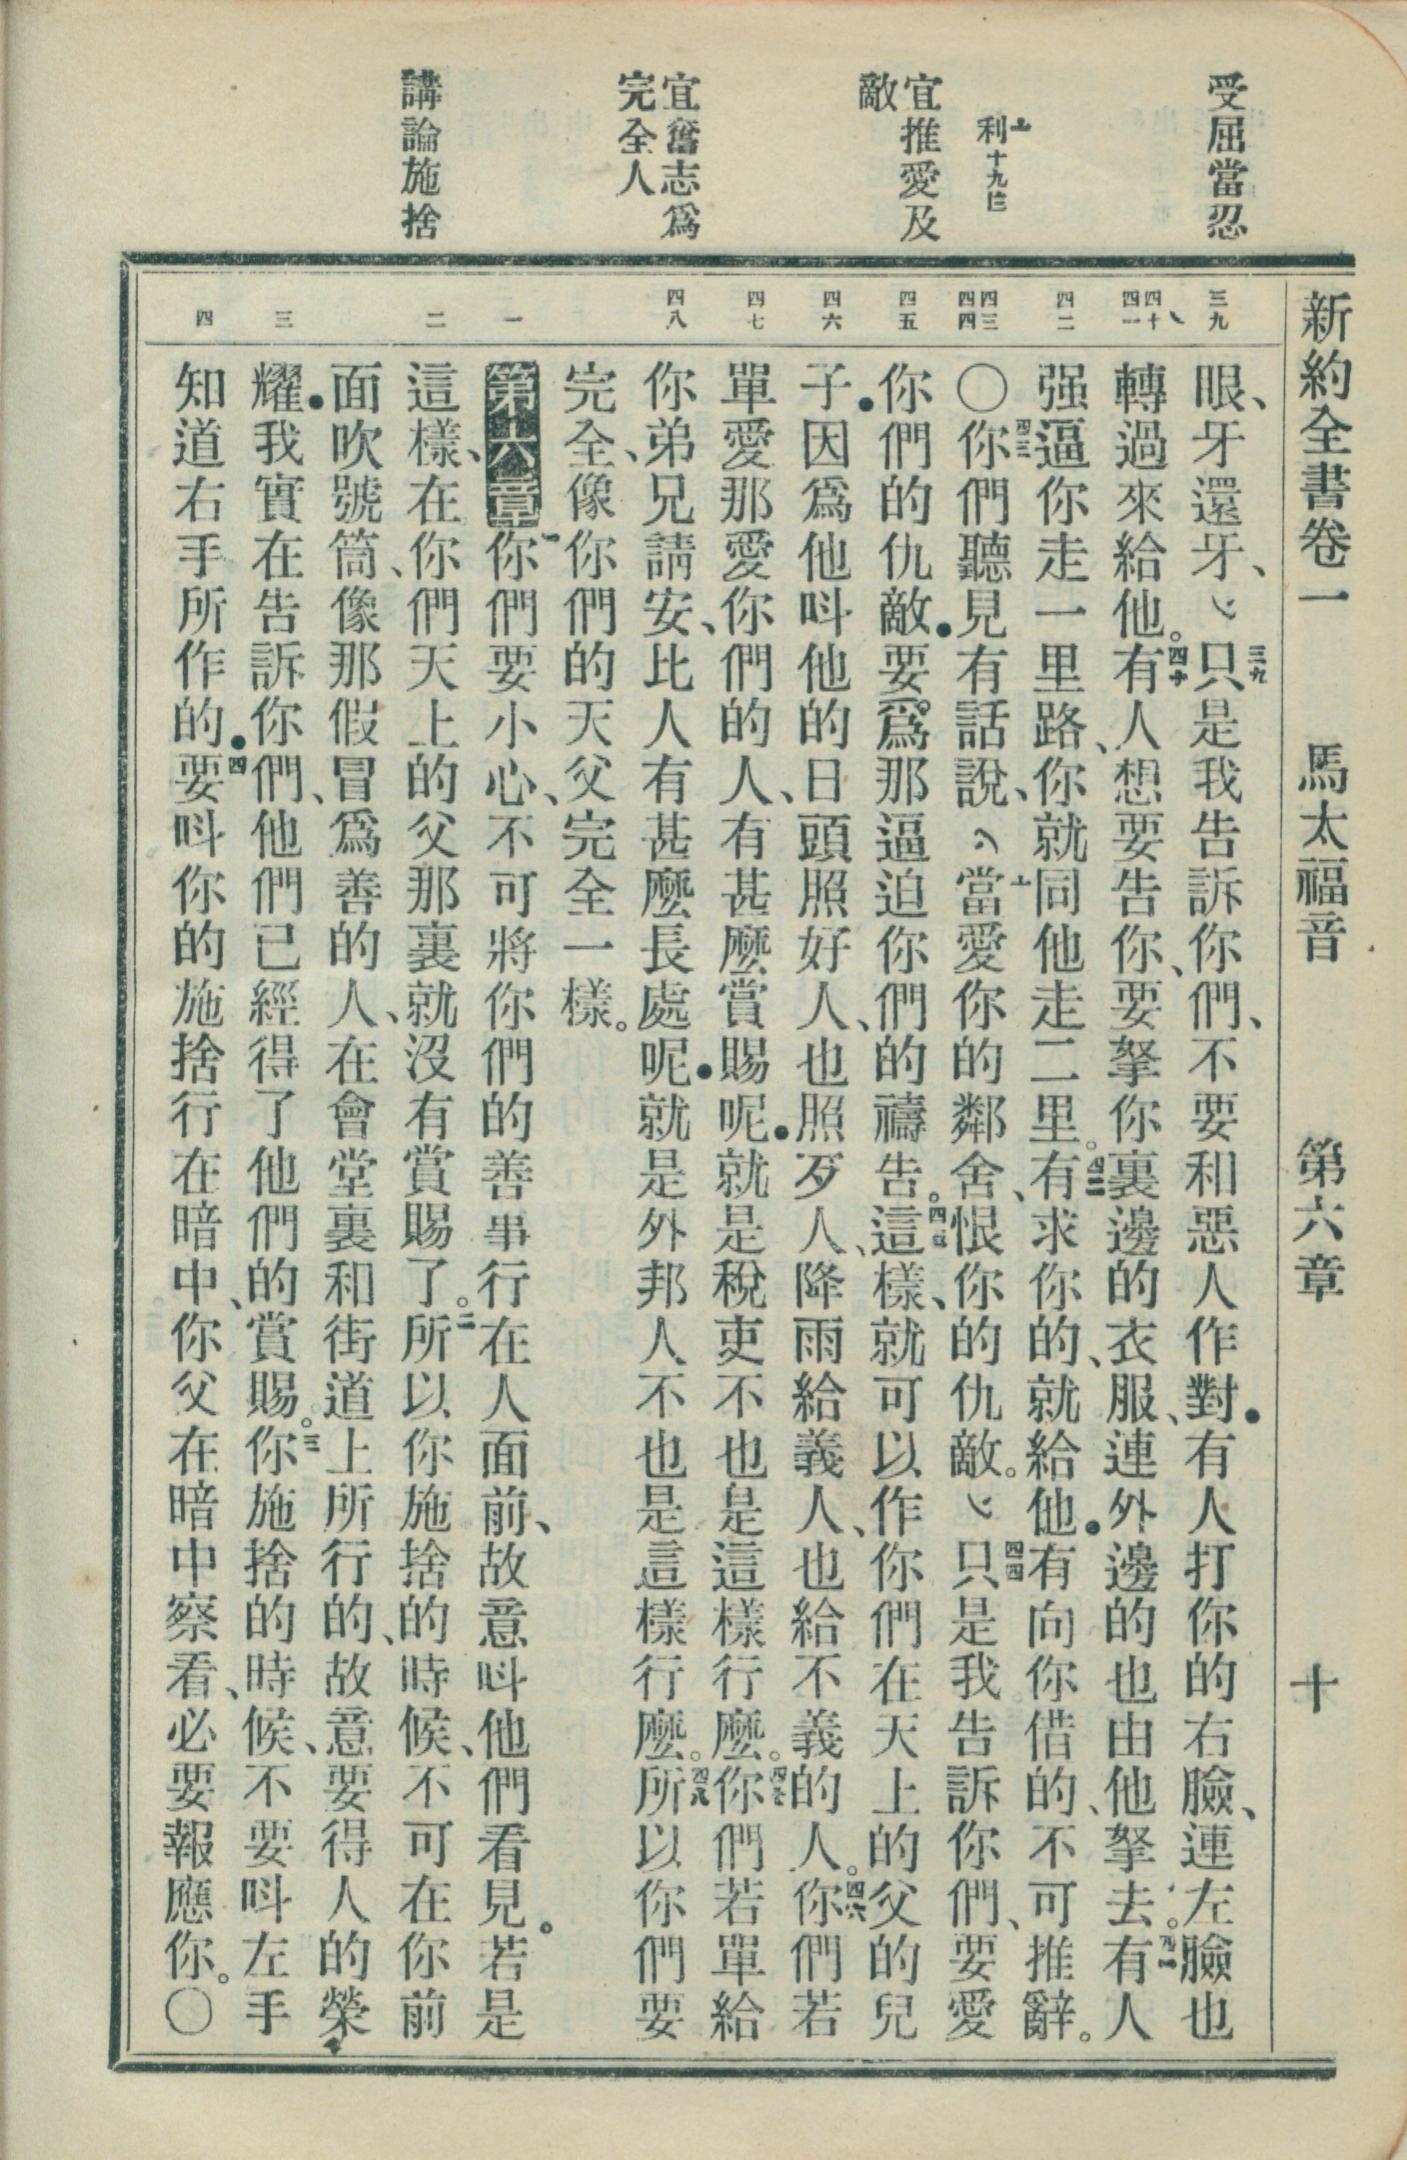 受屈當忍
利十九
宜推愛及
敵
宜奮志爲
完全人
講論施捨
新約全書卷一 馬太福音 第六章 十
三九
四十
四一
四二
四三
四四
四五
四六
四七
四八
一
二
三
四
眼、牙還牙、只是我告訴你們、不要和惡人作對●有人打你的右臉、連左臉也
轉過來給他。有人想要告你、要拏你裏邊的衣服、連外邊的也由他拏去。有人
强逼你走一里路、你就同他走二里。有求你的、就給他●有向你借的、不可推辭。
〇你們聽見有話說、當愛你的鄰舍、恨你的仇敵。只是我告訴你們、要愛
你們的仇敵●要爲那逼迫你們的禱告。這樣、就可以作你們在天上的父的兒
子●因爲他呌他的日頭照好人、也照歹人、降雨給義人、也給不義的人。你們若
單愛那愛你們的人、有甚麼賞賜呢●就是稅吏不也是這樣行麼。你們若單給
你弟兄請安、比人有甚麼長處呢●就是外邦人不也是這樣行麼。所以你們要
完全、像你們的天父完全一樣。
第六章 你們要小心、不可將你們的善事行在人面前、故意呌他們看見。若是
這樣、在你們天上的父那裏就沒有賞賜了。所以你施捨的時候、不可在你前
面吹號筒、像那假冒爲善的人、在會堂裏和街道上所行的、故意要得人的榮
耀●我實在告訴你們、他們已經得了他們的賞賜。你施捨的時候、不要呌左手
知道右手所作的●要呌你的施捨行在暗中、你父在暗中察看、必要報應你。〇